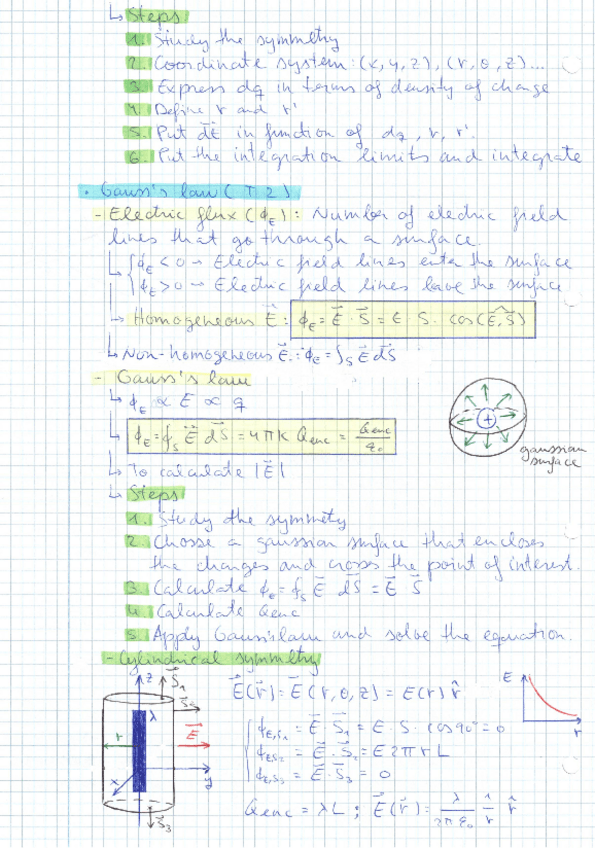 ↳ Steps
1. Study the symmetry
2. Coordinate system: (x, y, z), (r, θ, z)...
3. Express dq in terms of density of charge
4. Define r and r'
5. Put dE in function of dq, r, r'.
6. Put the integration limits and integrate
• Gauss's law (T2)
- Electric flux (ϕ_E): Number of electric field
lines that go through a surface.
↳ { ϕ_E < 0 → Electric field lines enter the surface
ϕ_E > 0 → Electric field lines leave the surface
↳ Homogeneous E⃗: ϕ_E = E⃗ · S⃗ = E · S · cos(E⃗, S⃗)
↳ Non-homogeneous E⃗: ϕ_E = ∫_S E⃗ dS⃗
- Gauss's law
↳ ϕ_E ∝ E ∝ q
↳ ϕ_E = ∮_S E⃗ dS⃗ = 4πK Qenc = Qenc/ε₀
+
gaussian
surface
↳ To calculate |E⃗|
↳ Steps
1. Study the symmetry
2. Choose a gaussian surface that encloses
the charges and cross the point of interest.
3. Calculate ϕ_E = ∮_S E⃗ dS⃗ = E⃗ S⃗
4. Calculate Qenc
5. Apply Gauss's law and solve the equation.
- Cylindrical symmetry
z S⃗₁
S⃗₂
λ
r E⃗
x y
S⃗₃
E⃗(r⃗) = E⃗(r, θ, z) = E(r) r̂
E
r
{ ϕ_E,S₁ = E⃗ · S⃗₁ = E · S · cos 90° = 0
ϕ_E,S₂ = E⃗ · S⃗₂ = E 2πrL
ϕ_E,S₃ = E⃗ · S⃗₃ = 0
Qenc = λL ; E⃗(r⃗) = λ/(2πε₀) 1/r r̂